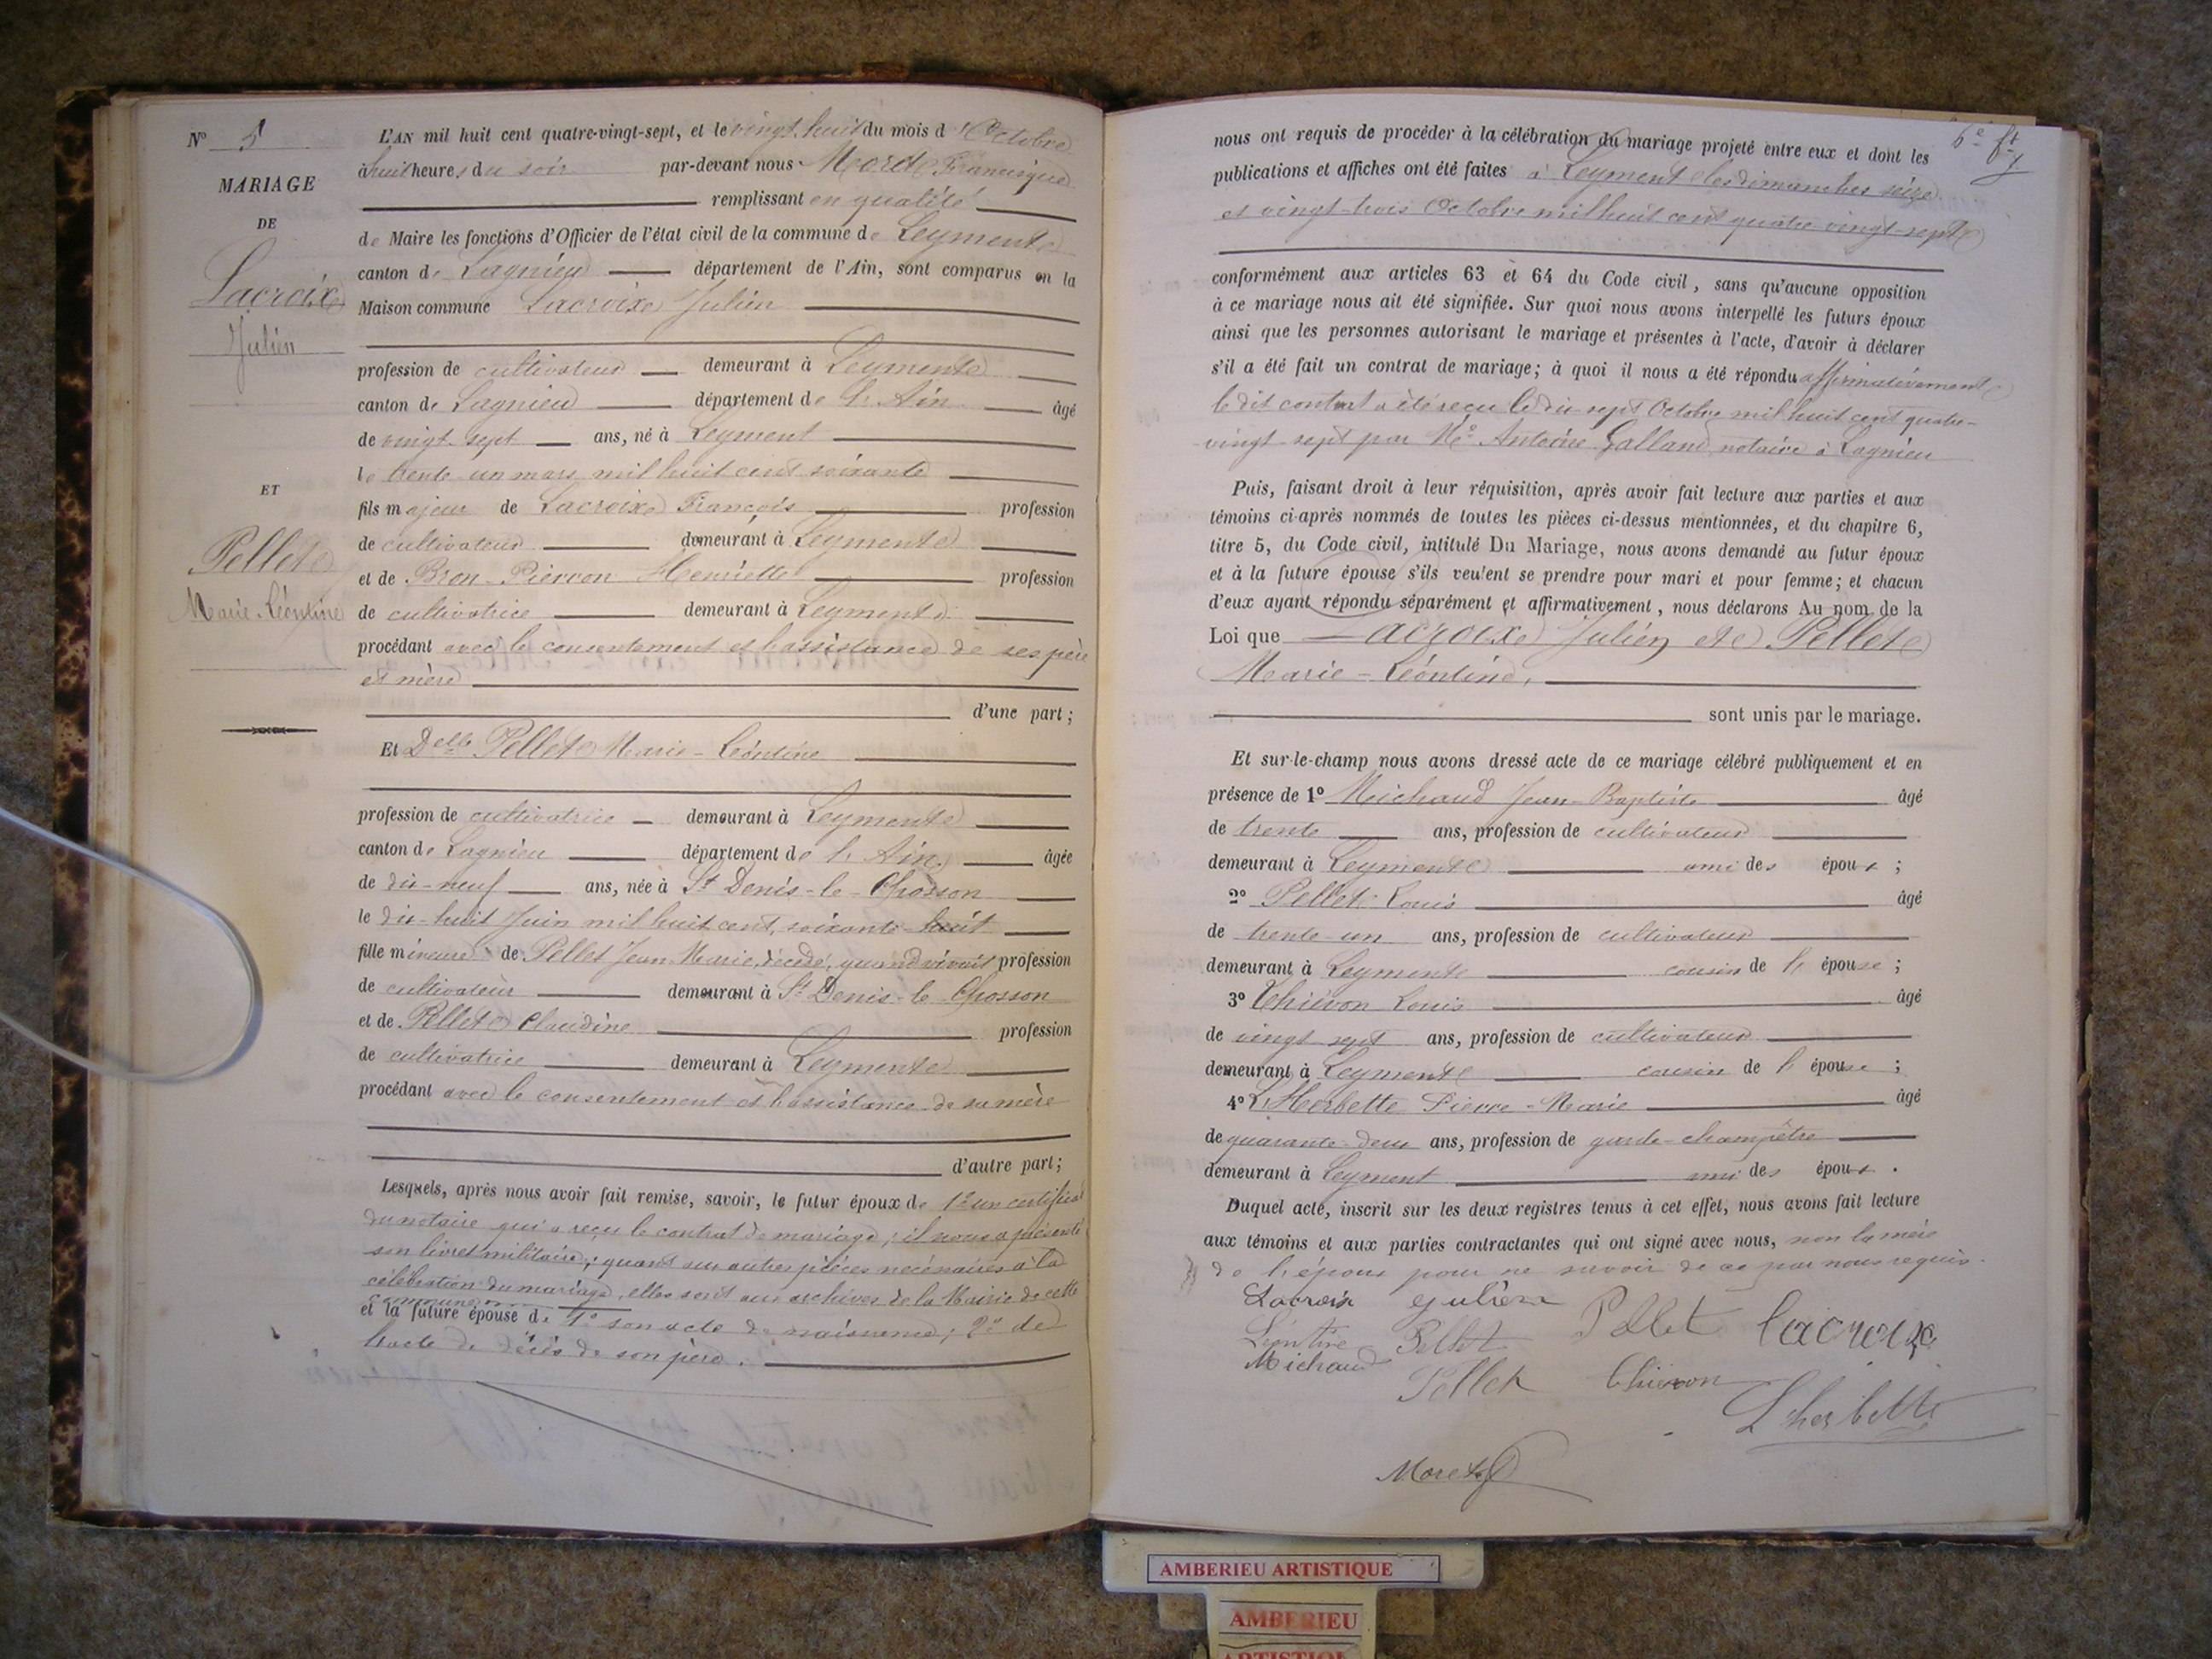 N° 5
MARIAGE
DE
Lacroix
Julien
ET
Pellet
Marie-Léontine
L'AN mil huit cent quatre-vingt-sept, et le vingt-huit du mois d'Octobre
à huit heures du soir par-devant nous Francisque
remplissant en qualité
de Maire les fonctions d'Officier de l'état civil de la commune de Leyment
canton de Lagnieu département de l'Ain, sont comparus en la
Maison commune Lacroix Julien
profession de cultivateur demeurant à Leyment
canton de Lagnieu département de l'Ain âgé
de vingt-sept ans, né à Leyment
le trente un mars mil huit cent soixante
fils majeur de Lacroix François profession
de cultivateur demeurant à Leyment
et de Bron-Piercon Henriette profession
de cultivatrice demeurant à Leyment
procédant avec le consentement et l'assistance de ses père
et mère
d'une part;
Et Delle Pellet Marie-Léontine
profession de cultivatrice demeurant à Leyment
canton de Lagnieu département de l'Ain âgée
de dix-neuf ans, née à St Denis-le-Chosson
le dix-huit Juin mil huit cent soixante-huit
fille mineure de Pellet Jean Marie, décédé, quand vivait profession
de cultivateur demeurant à St Denis-le-Chosson
et de Pellet Claudine profession
de cultivatrice demeurant à Leyment
procédant avec le consentement et l'assistance de sa mère
d'autre part;
Lesquels, après nous avoir fait remise, savoir, le futur époux de 1° un certificat
du notaire qui a reçu le contrat de mariage; il nous a présenté
son livret militaire; quant aux autres pièces nécessaires à la
célébration du mariage, elles sont aux archives de la Mairie de cette
commune
et la future épouse de 1° son acte de naissance; 2° de
l'acte de décès de son père.
nous ont requis de procéder à la célébration du mariage projeté entre eux et dont les
publications et affiches ont été faites à Leyment les dimanches seize
et vingt-trois Octobre mil huit cent quatre-vingt-sept
conformément aux articles 63 et 64 du Code civil, sans qu'aucune opposition
à ce mariage nous ait été signifiée. Sur quoi nous avons interpellé les futurs époux
ainsi que les personnes autorisant le mariage et présentes à l'acte, d'avoir à déclarer
s'il a été fait un contrat de mariage; à quoi il nous a été répondu affirmativement
le dit contrat a été reçu le dix-sept Octobre mil huit cent quatre-
vingt-sept par Me Antoine Galland notaire à Lagnieu
Puis, faisant droit à leur réquisition, après avoir fait lecture aux parties et aux
témoins ci-après nommés de toutes les pièces ci-dessus mentionnées, et du chapitre 6,
titre 5, du Code civil, intitulé Du Mariage, nous avons demandé au futur époux
et à la future épouse s'ils veulent se prendre pour mari et pour femme; et chacun
d'eux ayant répondu séparément et affirmativement, nous déclarons Au nom de la
Loi que Lacroix Julien et Pellet
Marie-Léontine,
sont unis par le mariage.
Et sur-le-champ nous avons dressé acte de ce mariage célébré publiquement et en
présence de 1° Michaud Jean-Baptiste âgé
de trente ans, profession de cultivateur
demeurant à Leyment ami des époux;
2° Pellet Louis âgé
de trente-un ans, profession de cultivateur
demeurant à Leyment cousin de l'épouse;
3° Thiévon Louis âgé
de vingt sept ans, profession de cultivateur
demeurant à Leyment cousin de l'épouse;
4° L'Herbette Pierre-Marie âgé
de quarante-deux ans, profession de garde-champêtre
demeurant à Leyment ami des époux.
Duquel acte, inscrit sur les deux registres tenus à cet effet, nous avons fait lecture
aux témoins et aux parties contractantes qui ont signé avec nous, non la mère
de l'époux pour ne savoir de ce par nous requis.
Lacroix Julien Pellet Lacroix
Léontine Pellet
Michaud
Pellet Thiévon
Lherbette
Moret
AMBERIEU ARTISTIQUE
AMBERIEU
ARTISTIQUE